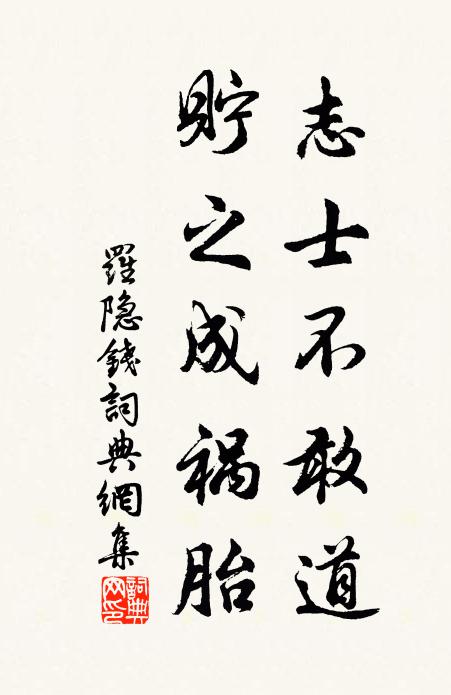 志士不敢道
貯之成祸胎
羅隐錢詞典網集
詞典网印